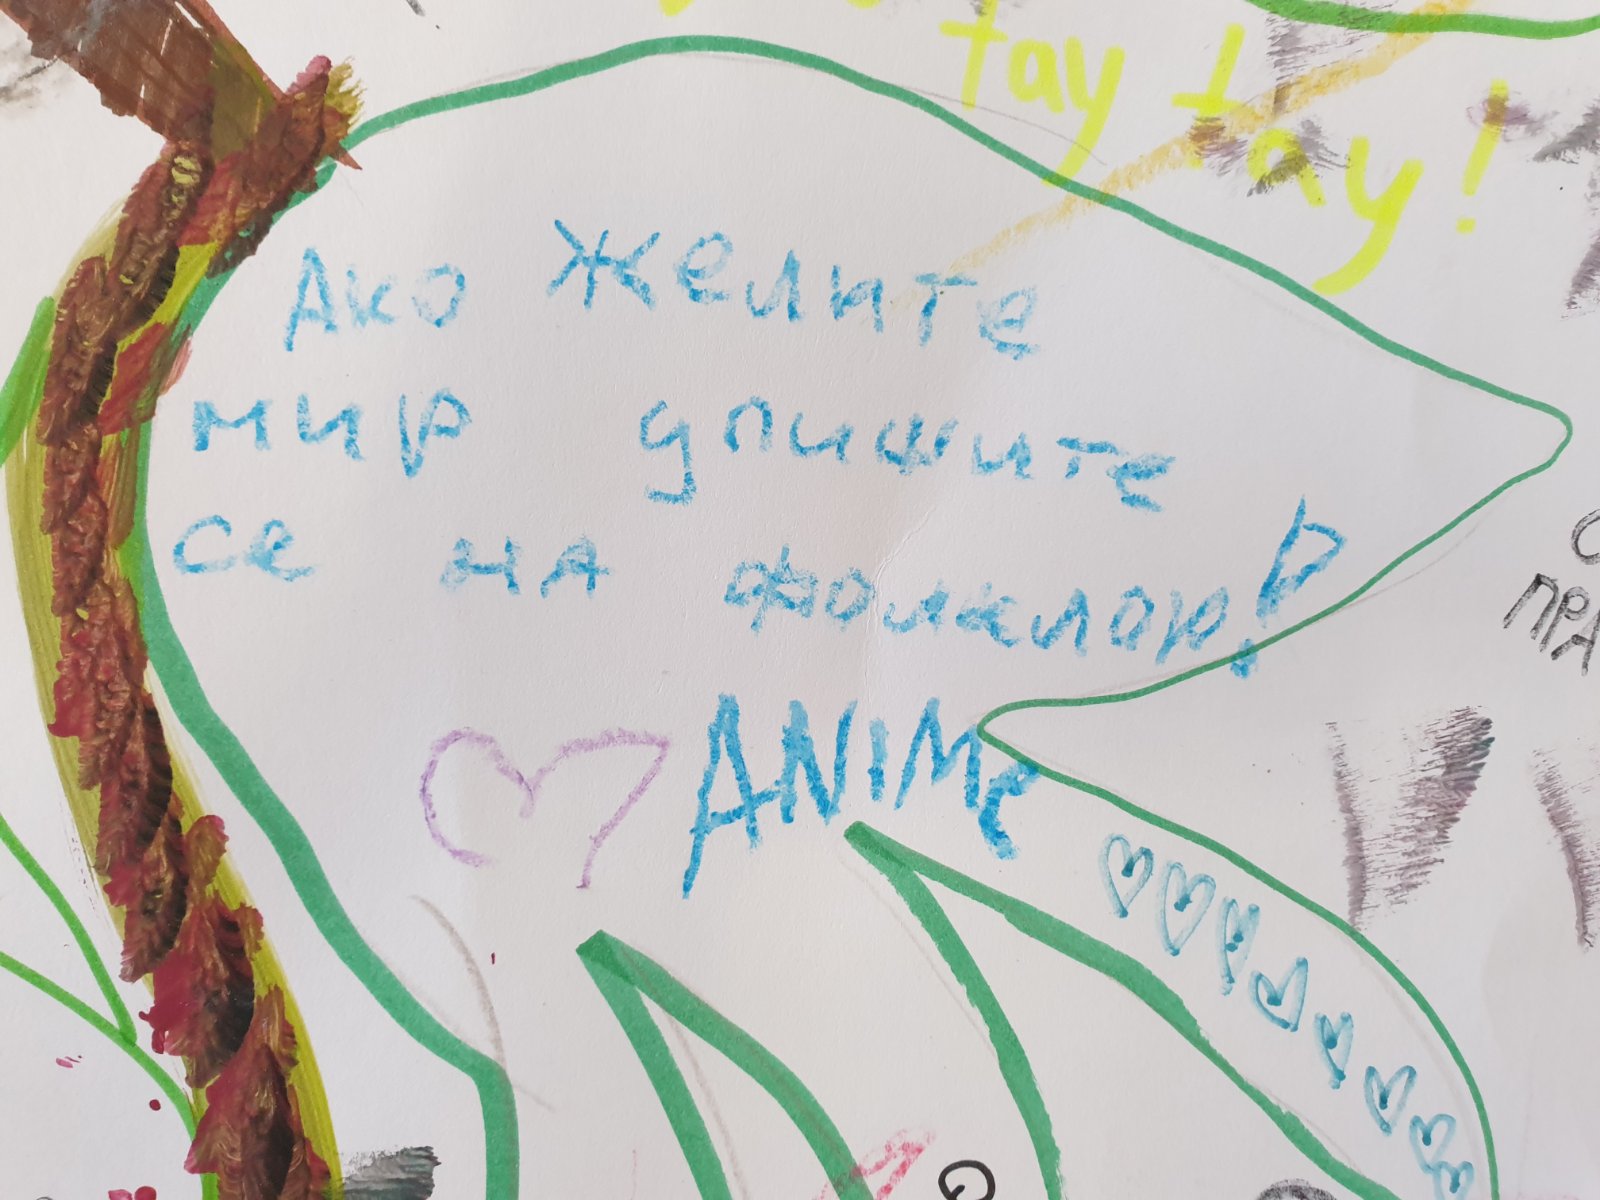 tay tay!
Ако желите
мир упишите
се на фолклор!
ANIMe
ПРА